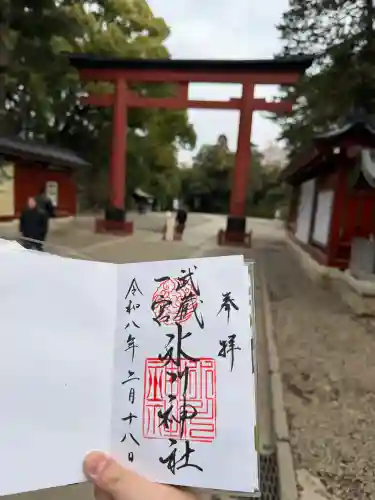 奉拝
武蔵
一宮
氷川神社
令和八年二月十八日